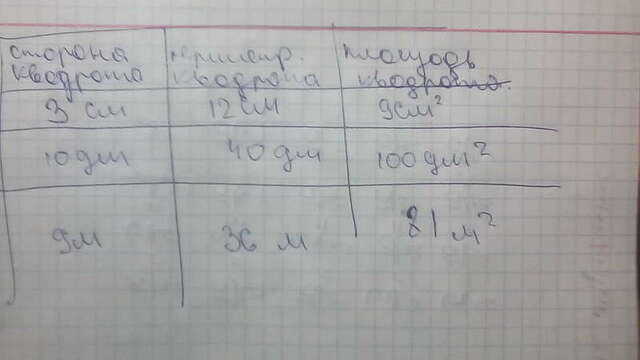 сторона квадрата
периметр. квадрата
площадь квадрата.
3 см 12 см 9 см²
10 дм 40 дм 100 дм²
9 м 36 м 81 м²